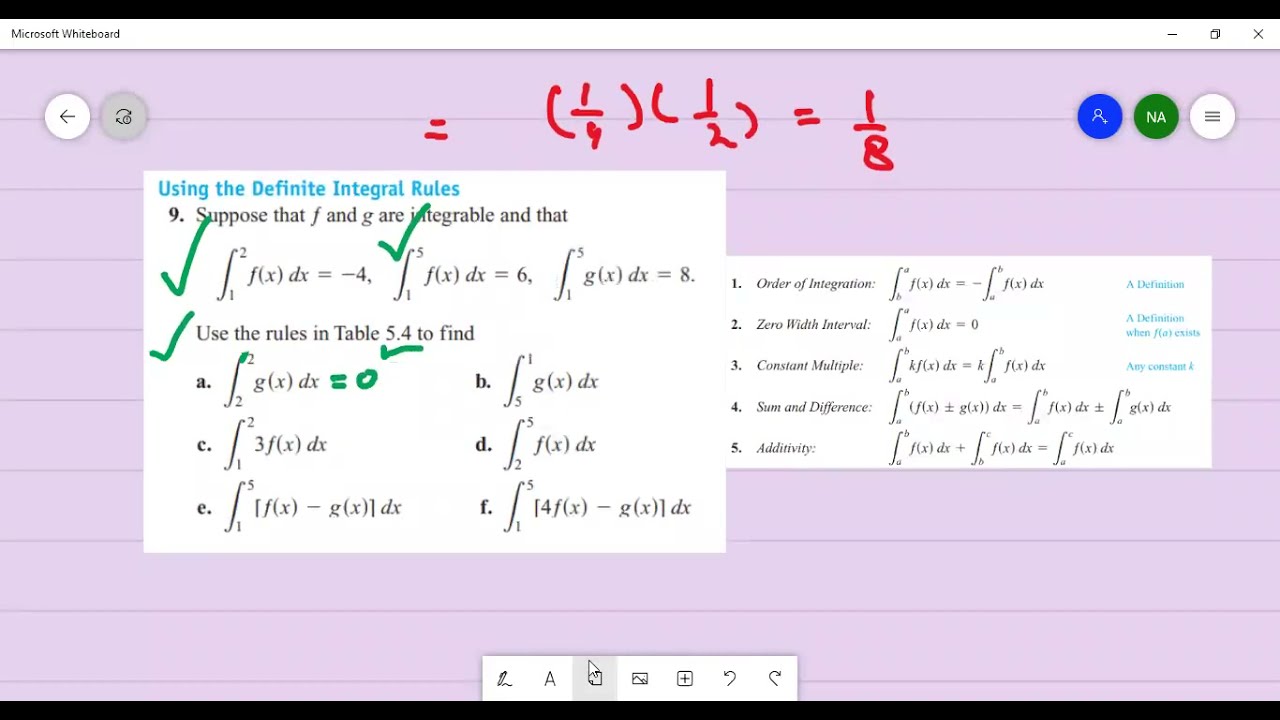 Microsoft Whiteboard
= (1/4)(1/2) = 1/8
NA
Using the Definite Integral Rules
9. Suppose that f and g are integrable and that
∫₁² f(x) dx = −4, ∫₁⁵ f(x) dx = 6, ∫₁⁵ g(x) dx = 8.
Use the rules in Table 5.4 to find
a. ∫₂² g(x) dx = 0 b. ∫₅¹ g(x) dx
c. ∫₁² 3f(x) dx d. ∫₂⁵ f(x) dx
e. ∫₁⁵ [f(x) − g(x)] dx f. ∫₁⁵ [4f(x) − g(x)] dx
1. Order of Integration: ∫_b^a f(x) dx = −∫_a^b f(x) dx A Definition
2. Zero Width Interval: ∫_a^a f(x) dx = 0 A Definition
when f(a) exists
3. Constant Multiple: ∫_a^b kf(x) dx = k∫_a^b f(x) dx Any constant k
4. Sum and Difference: ∫_a^b (f(x) ± g(x)) dx = ∫_a^b f(x) dx ± ∫_a^b g(x) dx
5. Additivity: ∫_a^b f(x) dx + ∫_b^c f(x) dx = ∫_a^c f(x) dx
A